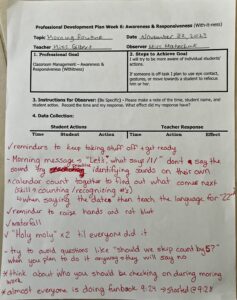 Professional Development Plan Week 6: Awareness & Responsiveness (With-it-ness)
Topic Morning Routine Date November 28, 2023
Teacher Miss Gilbert Observer Miss
1. Professional Goal
Classroom Management – Awareness &
Responsiveness (Withitness)
2. Steps to Achieve Goal
I will try to be more aware of individual students'
actions.
If someone is off task I plan to use eye contact,
gestures, or move towards a student to refocus
him or her.
3. Instructions for Observer: (Be Specific) - Please make a note of the time, student name, and
student action. Record the time and my response. What effect did my response have?
4. Data Collection:
Student Actions Teacher Response
Time Student Action Time Action Effect
✓ reminders to keep taking stuff off + get ready
- Morning message → "Let's what says /i/" don't say the
sound try identifying sounds on their own
* calendar count together to find out what comes next
skill → counting / recognizing #s)
→ when saying the date then teach the language for "22nd"
✓ reminder to raise hands and not blurt
✓ waterfall
✓ "Holy moly" x2 til everyone did it
- try to avoid questions like "should we skip count by 5?"
when you plan to do it anyway they will say no
* think about who you should be checking on during morning
work
* almost everyone is doing funbook 9:24 → started @ 9:28